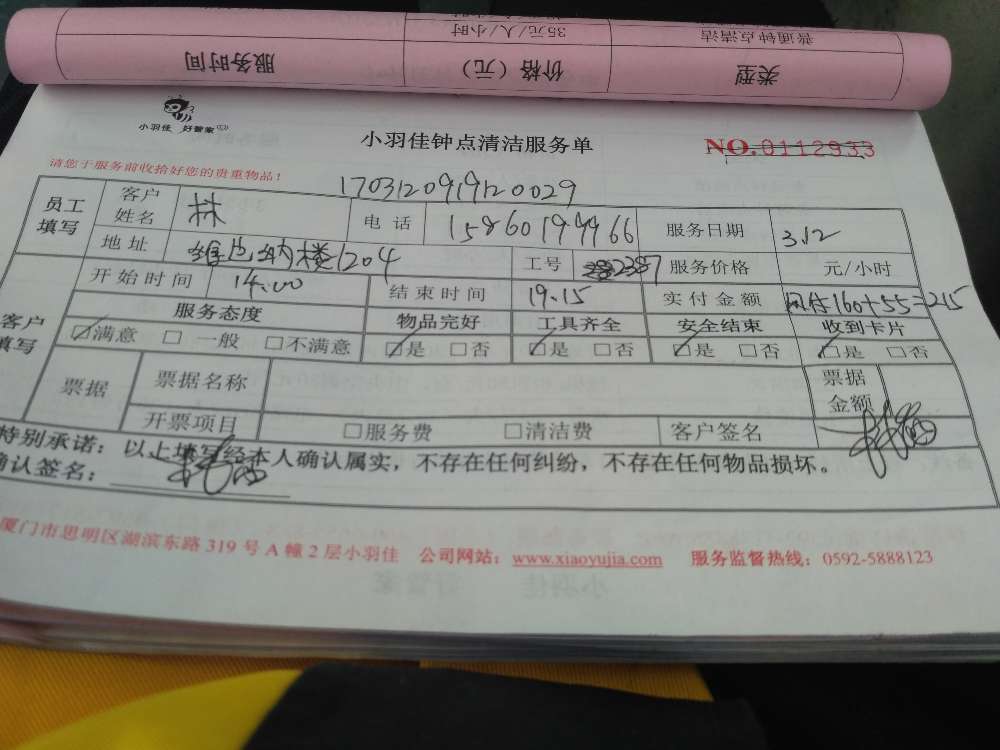 普通钟点清洁 35元/人/小时
类型 价格（元） 服务时间
小羽佳 好管家
小羽佳钟点清洁服务单
NO.0112933
请您于服务前收拾好您的贵重物品！
170312091912 0029
员工填写 客户姓名 林 电话 15860199966 服务日期 3.12
地址 维也纳楼1204 工号 2387 服务价格 元/小时
客户填写 开始时间 14.00 结束时间 19.15 实付金额 160+55=215
服务态度 物品完好 工具齐全 安全结束 收到卡片
☑满意 □一般 □不满意 ☑是 □否 ☑是 □否 ☑是 □否 ☑是 □否
票据 票据名称 票据金额
开票项目 □服务费 □清洁费 客户签名
特别承诺：以上填写经本人确认属实，不存在任何纠纷，不存在任何物品损坏。
确认签名：
厦门市思明区湖滨东路 319 号 A 幢 2 层小羽佳 公司网站：www.xiaoyujia.com 服务监督热线：0592-5888123